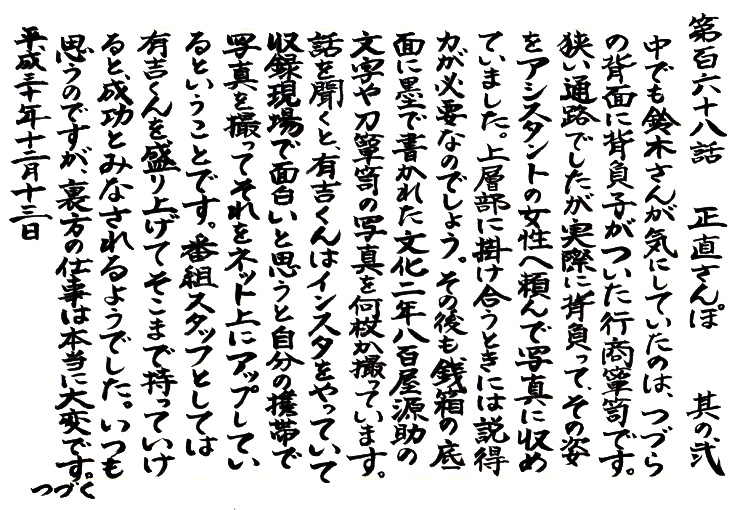 第百六十八話　正直さんぽ　其の弐
中でも鈴木さんが気にしていたのは、つづら
の背面に背負子がついた行商箪笥です。
狭い通路でしたが実際に背負って、その姿
をアシスタントの女性へ頼んで写真に収め
ていました。上層部に掛け合うときには説得
力が必要なのでしょう。その後も銭箱の底
面に墨で書かれた文化二年八百屋源助の
文字や刀箪笥の写真を何枚か撮っています。
話を聞くと、有吉くんはインスタをやっていて
収録現場で面白いと思うと自分の携帯で
写真を撮ってそれをネット上にアップしてい
るということです。番組スタッフとしては
有吉くんを盛り上げてそこまで持っていけ
ると、成功とみなされるようでした。いつも
思うのですが、裏方の仕事は本当に大変です。
つづく
平成三十年十二月十三日